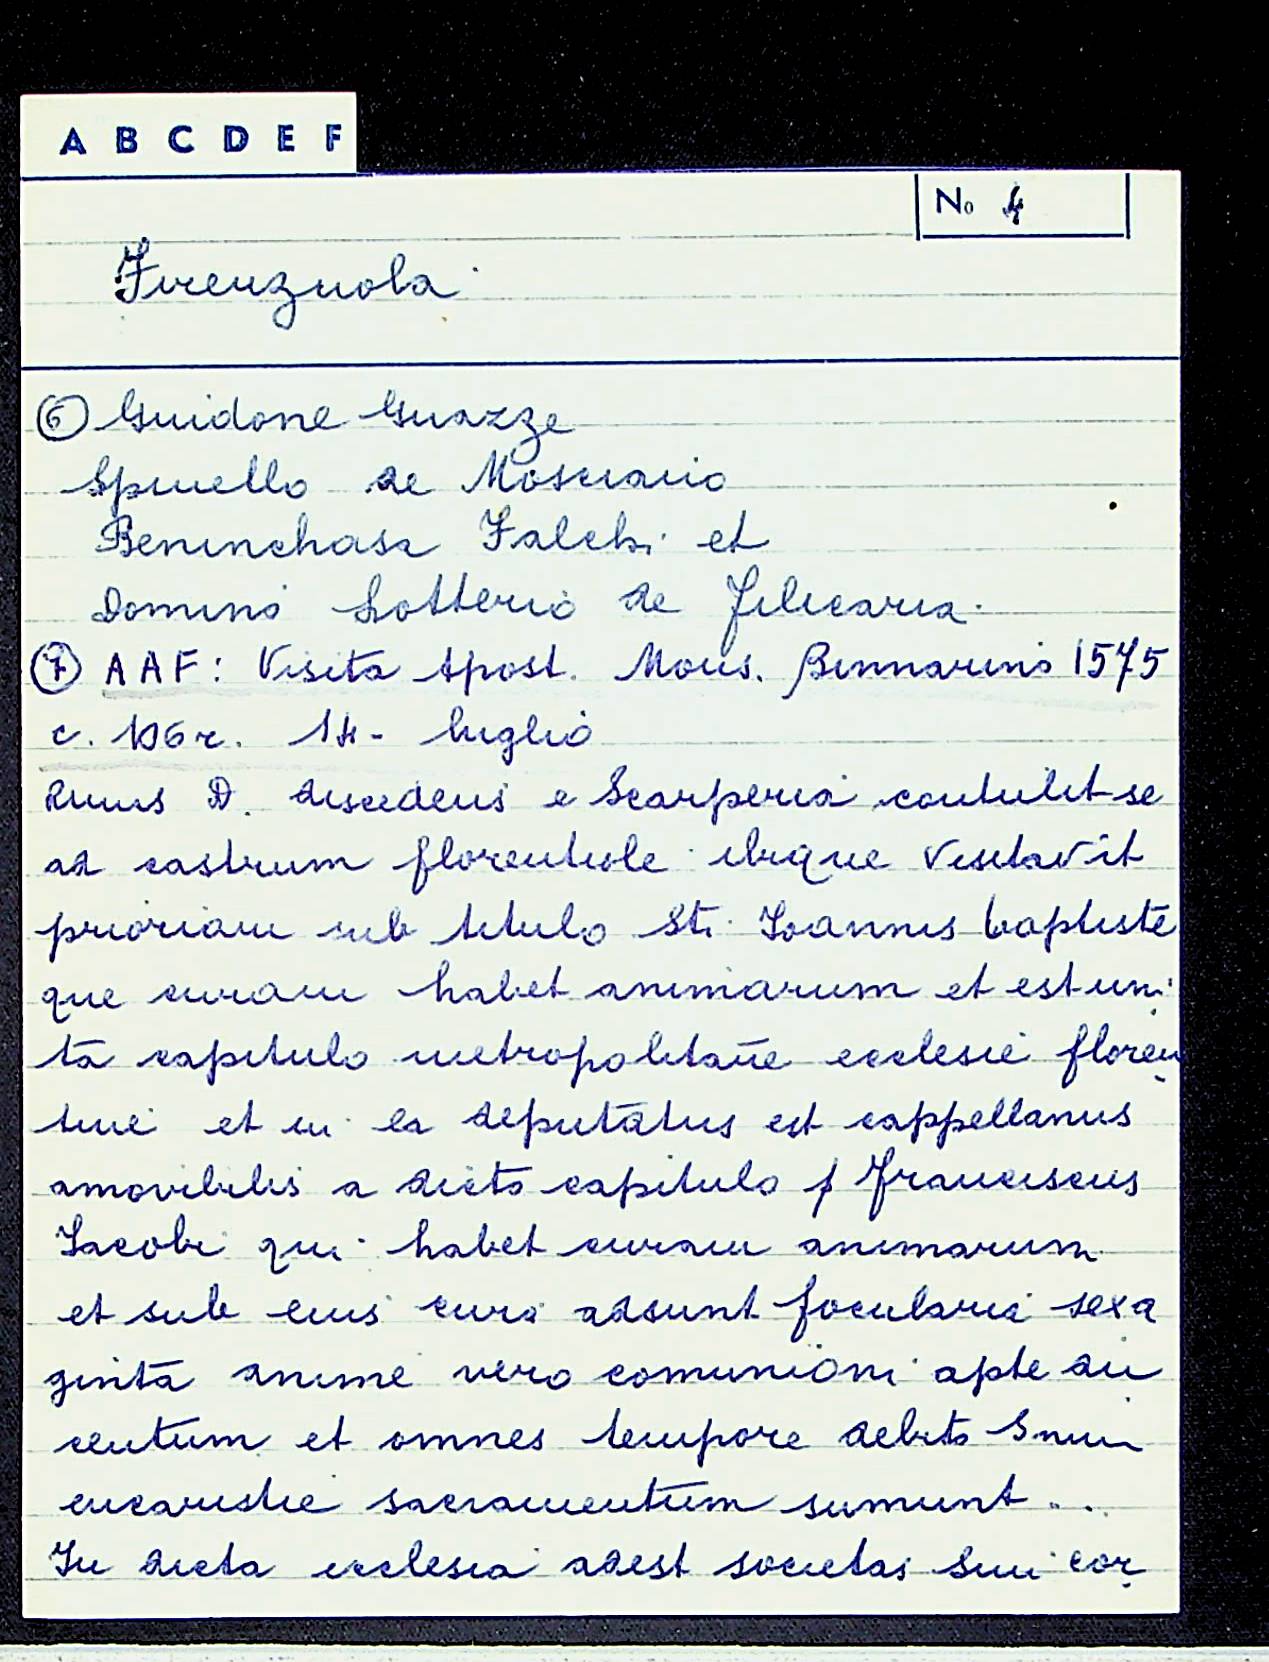 A B C D E F
No 4
Firenzuola
⑥ Guidone Guazze
Spinello de Mosciano
Beninchasa Falchi et
Domino Lotterio de Filicaria.
⑦ AAF: Visita Apost. Mons. Binnarino 1575
c. 106r. 14 - luglio
Rmus D. discedens e Scarperia contulit se
ad castrum florentiole ibique visitavit
prioriam sub titulo Sti Ioannis baptiste
que curam habet animarum et est uni
ta capitulo metropolitane ecclesie floren
tine et in ea deputatus est cappellanus
amovibilis a dicto capitulo f Franciscus
Iacobi qui habet curam animarum
et sub eius cura adsunt focularia sexa
ginta anime vero comunioni apte du
centum et omnes tempore debito Smum
eucaristie sacramentum sumunt...
In dicta ecclesia adest societas Smi cor